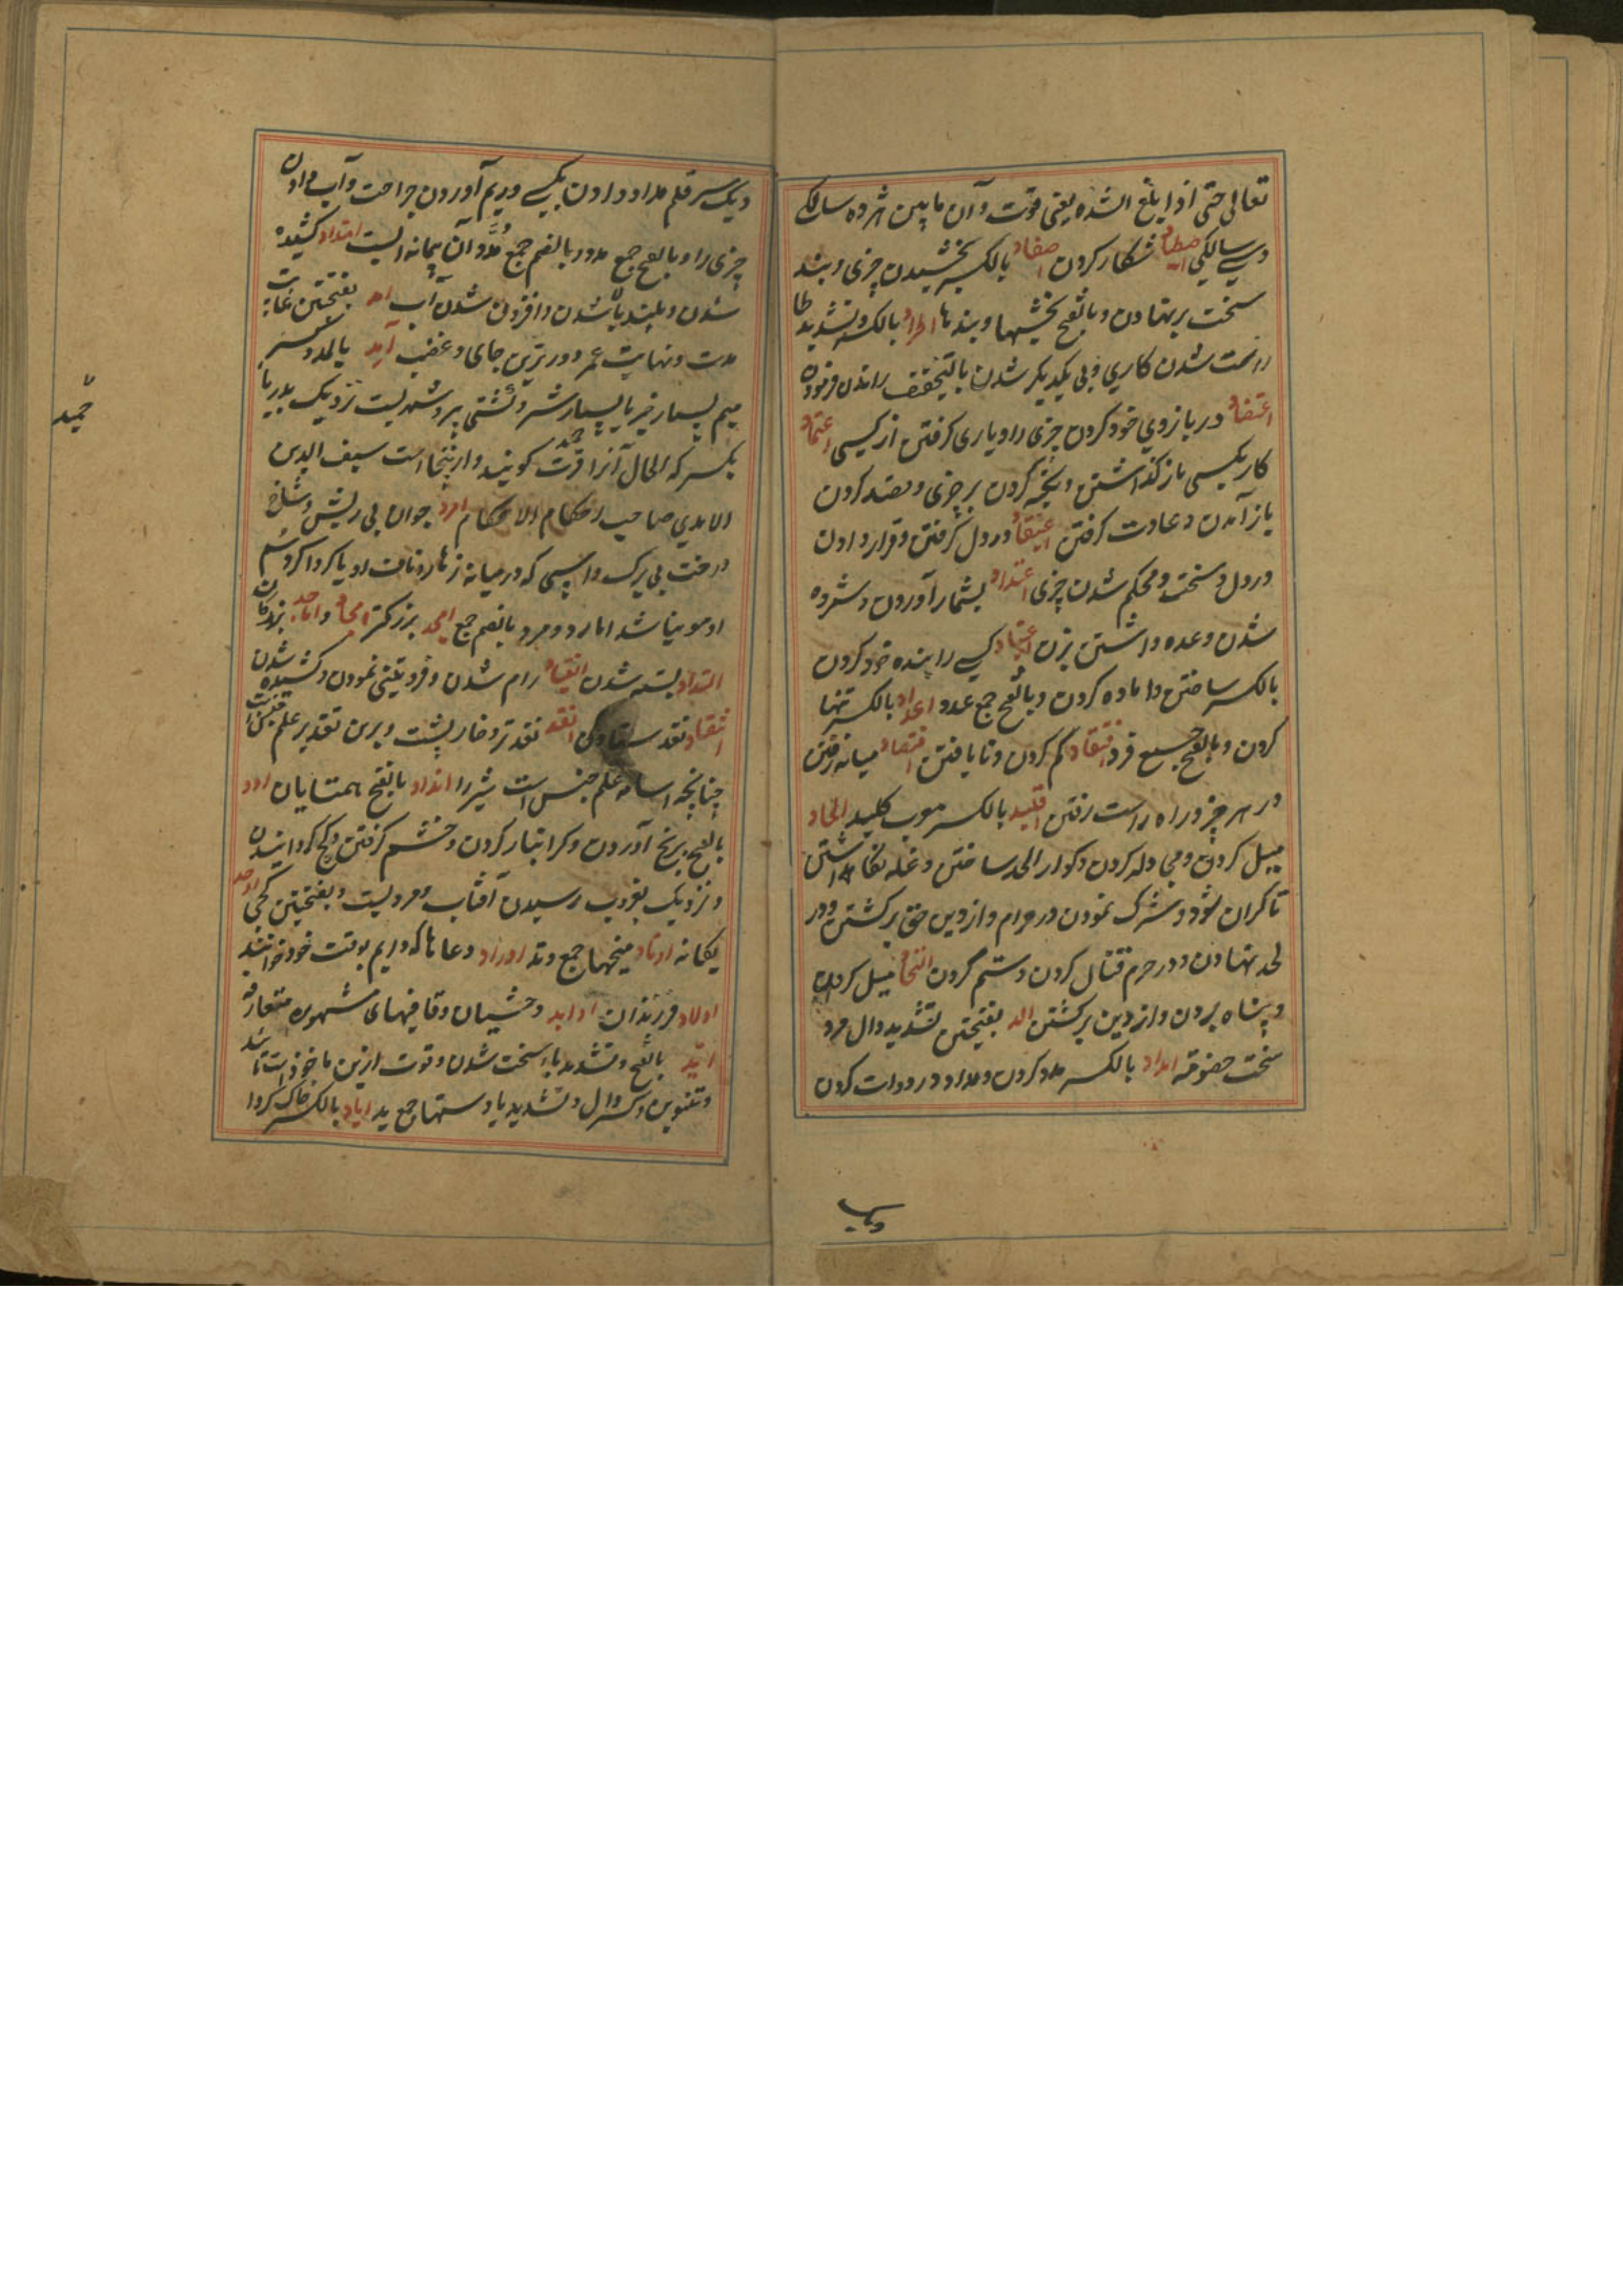 تعالی حتی اذا بلغ اشده یعنی قوت و آن مابین هژده سالکی
و سی سالکی اصطیاد شکار کردن اصفاد بالکسر بخشیدن چیزی و بند
سخت برنهادن و بالفتح بخششها و بندها اطراد بالکسر و تشدید طا
راست شدن کاری و پی یکدیکر شدن بالتخفیف راندن فرمودن
اعتضاد در بازوی خود کردن چیزی را و یاری کرفتن از کسی اعتماد
کار بکسی باز کذاشتن و تکیه کردن بر چیزی و قصد کردن
باز آمدن و عادت کرفتن اعتقاد در دل کرفتن و قرار دادن
در دل و سخت و محکم شدن چیزی اعتداد بشمار آوردن و شمرده
شدن و عده داشتن زن اعتباد کسی را بنده خود کردن
بالکسر ساختن و آماده کردن و بالفتح جمع عدد اعداد بالکسر تنها
کردن و بالفتح جمع فرد افتقاد کم کردن و نایافتن اقتصاد میانه رفتن
در هر چیز و راه راست رفتن اقلید بالکسر معرب کلید الحاد
میل کردن و مجادله کردن و کور را لحد ساختن و غله نکاه داشتن
تا کران شود و شرک نمودن در حرام و از دین حق برکشتن و در
لحد نهادن و در حرم قتال کردن و ستم کردن التحاد میل کردن
و پناه بردن و از دین برکشتن الد بفتحتین تشدید دال مرد
سخت خصومة امداد بالکسر مدد کردن و مداد در دوات کردن
ویک
ویک سر قلم مداد دادن بکسی و ریم آوردن جراحت و آب دادن
چیزی را و بالفتح جمع مدد و بالضم جمع مد و آن پیمانه ایست امتداد کشیده
شدن و بلند بالا شدن و افزون شدن آب امد بفتحتین غایت
مدت و نهایت عمر و دورترین جای و غضب آمد بالمد و کسر
میم بسیار خیر یا بسیار شر و کشتی پر و شهریست نزدیک بدریا
بکسر که الحال آنرا قره حمید کویند و از ینجا است سیف الدین
الامدی صاحب احکام الاحکام امرد جوان بی ریش و شاخ
درخت بی برک و اسپی که در میانه زهار و ناف او یا کرداکرد سم
او مو نباشد امارد و مرد بالضم جمع امجد بزرکتر امجاد و اماجد بزرکان
انسداد بسته شدن انقیاد رام شدن و فروتنی نمودن و کشیده شدن
انتقاد نقد ستادن انقد نقدتر و خارپشت و برین تقدیر علم جنس است
چنانچه اسامه علم جنس است شیر را انداد بالفتح همتایان اود
بالفتح برنج آوردن و کرانبار کردن و خشم کرفتن و کج کردانیدن
و نزدیک بغروب رسیدن آفتاب و مردیست و بفتحتین کجی اوحد
یکانه اوتاد میخها جمع وتد اوراد دعاها که دایم بوقت خود خوانند
اولاد فرزندان اوابد وحشیان و قافیهای مشهوره متعارفه
اید بالفتح و تشدید یاء سخت شدن و قوت ازین ماخوذ است تائید
و تنوین و کسر دال و تشدید یا دستها جمع ید ایاد بالکسر خاک کردا
حمید